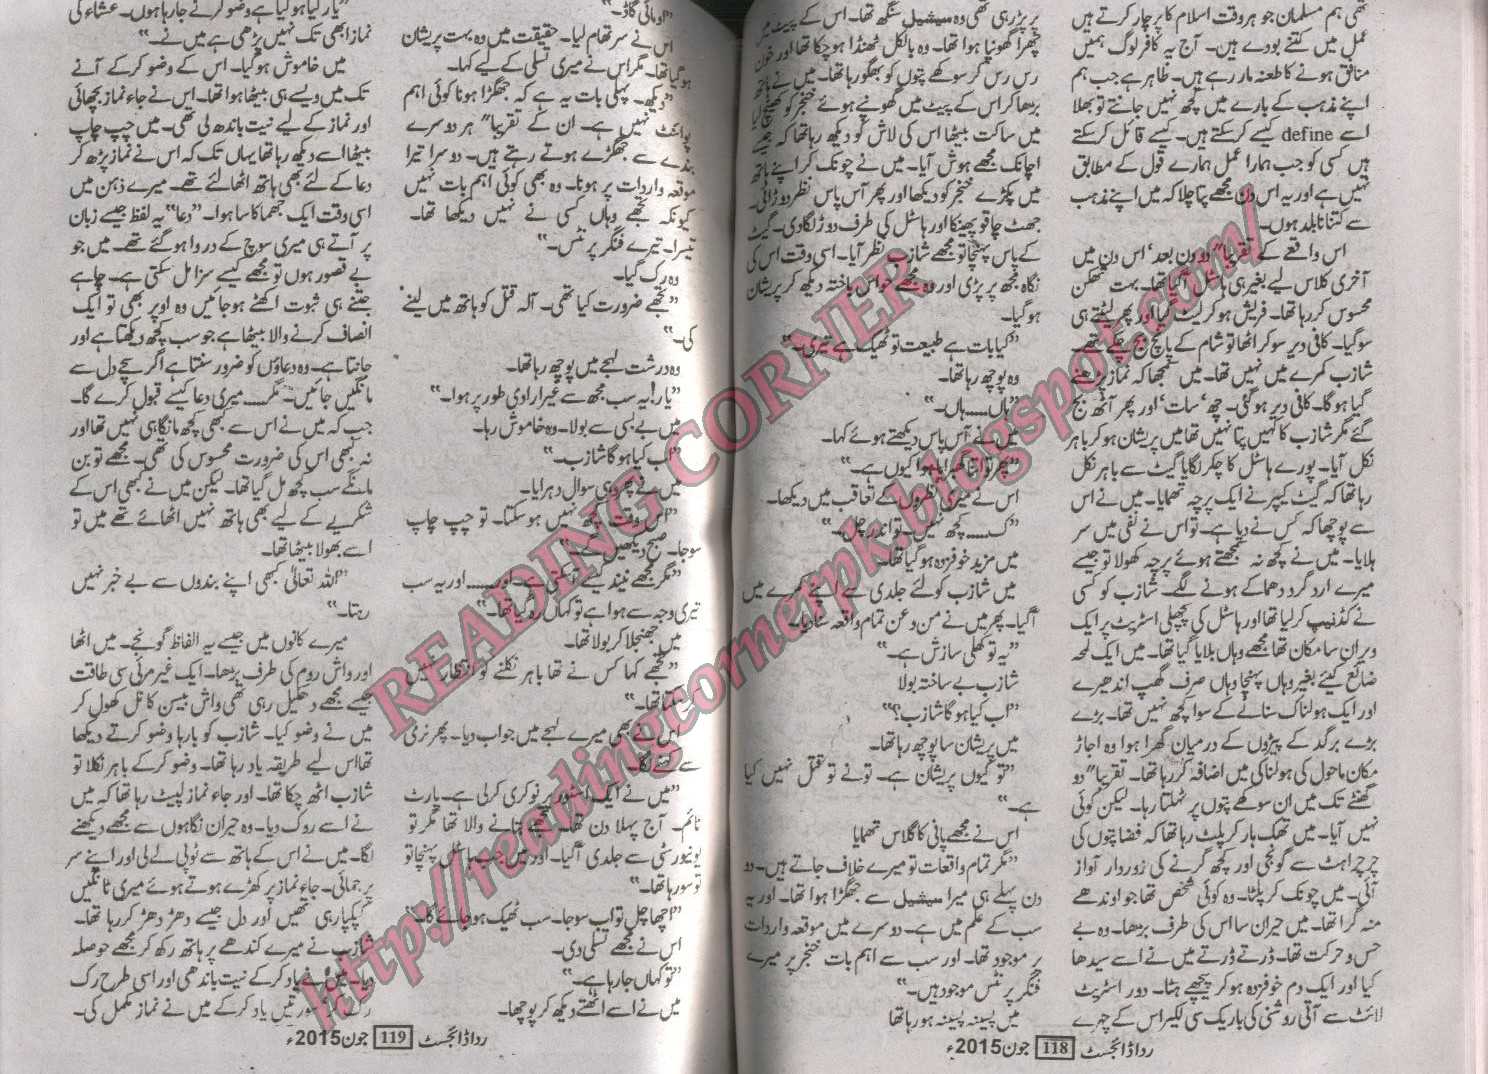 تھی ہم مسلمان جو ہر وقت اسلام کا پرچار کرتے ہیں
عمل میں کتنے بودے ہیں۔ آج یہ کافر لوگ ہمیں
منافق ہونے کا طعنہ مار رہے ہیں۔ ظاہر ہے جب ہم
اپنے مذہب کے بارے میں کچھ نہیں جانتے تو بھلا
اسے define کیسے کرسکتے ہیں۔ کیسے قائل کرسکتے
ہیں کسی کو جب ہمارا عمل ہمارے قول کے مطابق
نہیں ہے اور یہ اس دن مجھے پتا چلا کہ میں اپنے مذہب
سے کتنا نابلد ہوں۔
اس واقعے کے تقریباً دو دن بعد، اس دن میں
آخری کلاس لیے بغیر ہی ہاسٹل آگیا تھا۔ بہت تھکن
محسوس کررہا تھا۔ فریش ہوکر لیٹ گیا اور پھر لیٹتے ہی
سوگیا۔ کافی دیر سو کر اٹھا تو شام کے پانچ بج چکے تھے۔
شازب کمرے میں نہیں تھا۔ میں سمجھا کہ نماز پڑھنے
گیا ہوگا۔ کافی دیر ہوگئی۔ چھ، سات، اور پھر آٹھ بج
گئے مگر شازب کا کہیں پتا نہیں تھا میں پریشان ہوکر باہر
نکل آیا۔ پورے ہاسٹل کا چکر لگایا گیٹ سے باہر نکل
رہا تھا کہ گیٹ کیپر نے ایک پرچہ تھمایا۔ میں نے اس
سے پوچھا کہ کس نے دیا ہے۔ تو اس نے نفی میں سر
ہلایا۔ میں نے کچھ نہ سمجھتے ہوئے پرچہ کھولا تو جیسے
میرے ارد گرد دھماکے ہونے لگے۔ شازب کو کسی
نے کڈنیپ کرلیا تھا اور ہاسٹل کی پچھلی اسٹریٹ پر ایک
ویران سا مکان تھا مجھے وہاں بلایا گیا تھا۔ میں ایک لمحہ
ضائع کیے بغیر وہاں پہنچا وہاں صرف گھپ اندھیرے
اور ایک ہولناک سناٹے کے سوا کچھ نہیں تھا۔ بڑے
بڑے برگد کے پیڑوں کے درمیان گھرا ہوا وہ اجاڑ
مکان ماحول کی ہولناکی میں اضافہ کررہا تھا۔ تقریباً دو
گھنٹے تک میں ان سوکھے پتوں پر ٹہلتا رہا۔ لیکن کوئی
نہیں آیا۔ میں تھک ہار کر پلٹ رہا تھا کہ فضا پتوں کی
چرچراہٹ سے گونجی اور کچھ گرنے کی زوردار آواز
آئی۔ میں چونک کر پلٹا۔ وہ کوئی شخص تھا جو اوندھے
منہ گرا تھا۔ میں حیران سا اس کی طرف بڑھا۔ وہ بے
حس و حرکت تھا۔ ڈرتے ڈرتے میں نے اسے سیدھا
کیا اور ایک دم خوفزدہ ہوکر پیچھے ہٹا۔ دور اسٹریٹ
لائٹ سے آتی روشنی کی باریک سی لکیر اس کے چہرے
پر پڑ رہی تھی وہ سیشیل سنگھ تھا۔ اس کے پیٹ میں
چھرا گھونپا ہوا تھا۔ وہ بالکل ٹھنڈا ہوچکا تھا اور خون
رس رس کر سوکھے پتوں کو بھگو رہا تھا۔ میں نے ہاتھ
بڑھا کر اس کے پیٹ میں گھونپے ہوئے خنجر کو کھینچ لیا
میں ساکت بیٹھا اس کی لاش کو دیکھ رہا تھا کہ جیسے
اچانک مجھے ہوش آیا۔ میں نے چونک کر اپنے ہاتھ
میں پکڑے خنجر کو دیکھا اور پھر آس پاس نظر دوڑائی۔
جھٹ چاقو پھینکا اور ہاسٹل کی طرف دوڑ لگا دی۔ گیٹ
کے پاس پہنچا تو مجھے شازب نظر آیا۔ اسی وقت اس کی
نگاہ مجھ پر پڑی اور وہ مجھے حواس باختہ دیکھ کر پریشان
ہوگیا۔
”کیا بات ہے طبیعت تو ٹھیک ہے تیری۔“
وہ پوچھ رہا تھا۔
”ہاں.....ہاں۔“
میں نے آس پاس دیکھتے ہوئے کہا۔
”پھر تو اتنا گھبرایا ہوا کیوں ہے۔“
اس نے میری نظروں کے تعاقب میں دیکھا۔
”ک..... کچھ نہیں۔ تو اندر چل۔“
میں مزید خوفزدہ ہوگیا تھا۔
میں شازب کو لئے جلدی سے اپنے کمرے میں
آگیا۔ پھر میں نے من و عن تمام واقعہ سنا دیا۔
”یہ تو کھلی سازش ہے۔“
شازب بے ساختہ بولا
”اب کیا ہوگا شازب؟“
میں پریشان سا پوچھ رہا تھا۔
”تو کیوں پریشان ہے۔ تو نے تو قتل نہیں کیا
ہے۔“
اس نے مجھے پانی کا گلاس تھمایا
”مگر تمام واقعات تو میرے خلاف جاتے ہیں۔ دو
دن پہلے ہی میرا سیشیل سے جھگڑا ہوا تھا۔ اور یہ
سب کے علم میں ہے۔ دوسرے میں موقعہ واردات
پر موجود تھا۔ اور سب سے اہم بات خنجر پر میرے
فنگر پرنٹس موجود ہیں۔“
میں پسینہ پسینہ ہورہا تھا
رداڈائجسٹ 118 جون 2015ء
”اومائی گاڈ۔“
اس نے سر تھام لیا۔ حقیقت میں وہ بہت پریشان
ہوگیا تھا۔ مگر اس نے میری تسلی کے لیے کہا۔
”دیکھ۔ پہلی بات یہ ہے کہ جھگڑا ہونا کوئی اہم
پوائنٹ نہیں ہے۔ ان کے تقریباً ہر دوسرے
بندے سے جھگڑے ہوتے رہتے ہیں۔ دوسرا تیرا
موقعہ واردات پر ہونا۔ وہ بھی کوئی اہم بات نہیں
کیونکہ تجھے وہاں کسی نے نہیں دیکھا تھا۔
تیسرا۔ تیرے فنگر پرنٹس۔“
وہ رک گیا۔
”تجھے ضرورت کیا تھی۔ آلہ قتل کو ہاتھ میں لینے
کی۔“
وہ درشت لہجے میں پوچھ رہا تھا۔
”یار! یہ سب مجھ سے غیر ارادی طور پر ہوا۔“
میں بے بسی سے بولا۔ وہ خاموش رہا۔
”اب کیا ہوگا شازب۔“
میں نے پھر وہی سوال دہرایا۔
”اس وقت کچھ نہیں ہوسکتا۔ تو چپ چاپ
سوجا۔ صبح دیکھیں گے۔“
”مگر مجھے نیند کیسے آسکتی ہے۔ اور..... اور یہ سب
تیری وجہ سے ہوا ہے تو کہاں رہ گیا تھا۔“
میں جھنجلا کر بولا تھا۔
”تجھے کہا کس نے تھا باہر نکلنے کو انتظار نہیں
کرسکتا تھا۔“
اس نے بھی میرے لہجے میں جواب دیا۔ پھر نرمی
سے کہنے لگا۔
”میں نے ایک اسٹور پر نوکری کرلی ہے۔ پارٹ
ٹائم۔ آج پہلا دن تھا۔ تجھے بتانے والا تھا مگر تو
یونیورسٹی سے جلدی آگیا۔ اور میں جب ہاسٹل پہنچا تو
تو سورہا تھا۔“
”اچھا چل تو اب سوجا۔ سب ٹھیک ہوجائے گا۔“
اس نے مجھے تسلی دی۔
”تو کہاں جارہا ہے۔“
میں نے اسے اٹھتے دیکھ کر پوچھا۔
”یار کیا ہوگیا ہے وضو کرنے جارہا ہوں۔ عشاء کی
نماز ابھی تک نہیں پڑھی ہے میں نے۔“
میں خاموش ہوگیا۔ اس کے وضو کرکے آنے
تک میں ویسے ہی بیٹھا ہوا تھا۔ اس نے جاء نماز بچھائی
اور نماز کے لیے نیت باندھ لی تھی۔ میں چپ چاپ
بیٹھا اسے دیکھ رہا تھا یہاں تک کہ اس نے نماز پڑھ کر
دعا کے لئے بھی ہاتھ اٹھا لئے تھے۔ میرے ذہن میں
اسی وقت ایک جھماکا سا ہوا۔ ”دعا“ یہ لفظ جیسے زبان
پر آتے ہی میری سوچ کے در وا ہوگئے تھے۔ میں جو
بے قصور ہوں تو مجھے کیسے سزا مل سکتی ہے۔ چاہے
جتنے ہی ثبوت اکٹھے ہوجائیں وہ اوپر بھی تو ایک
انصاف کرنے والا بیٹھا ہے جو سب کچھ دیکھتا ہے اور
جانتا ہے۔ وہ دعاؤں کو ضرور سنتا ہے اگر سچے دل سے
مانگیں جائیں۔ مگر..... میری دعا کیسے قبول کرے گا۔
جب کہ میں نے اس سے کبھی کچھ مانگا ہی نہیں تھا اور
نہ کبھی اس کی ضرورت محسوس کی تھی۔ مجھے تو بن
مانگے سب کچھ مل گیا تھا۔ لیکن میں نے کبھی اس کے
شکریے کے لیے بھی ہاتھ نہیں اٹھائے تھے میں تو
اسے بھولا بیٹھا تھا۔
”اللہ تعالیٰ کبھی اپنے بندوں سے بے خبر نہیں
رہتا۔“
میرے کانوں میں جیسے یہ الفاظ گونجے۔ میں اٹھا
اور واش روم کی طرف بڑھا۔ ایک غیر مرئی سی طاقت
جیسے مجھے دھکیل رہی تھی واش بیسن کا نل کھول کر
میں نے وضو کیا۔ شازب کو بارہا وضو کرتے دیکھا
تھا اس لیے طریقہ یاد رہا تھا۔ وضو کرکے باہر نکلا تو
شازب اٹھ چکا تھا۔ اور جاء نماز لپیٹ رہا تھا کہ میں
نے اسے روک دیا۔ وہ حیران نگاہوں سے مجھے دیکھنے
لگا۔ میں نے اس کے ہاتھ سے ٹوپی لے لی اور اپنے سر
پر جمائی۔ جاء نماز پر کھڑے ہوتے ہوئے میری ٹانگیں
کپکپا رہی تھیں اور دل جیسے دھڑ دھڑ کررہا تھا۔
شازب نے میرے کندھے پر ہاتھ رکھ کر مجھے حوصلہ
دیا۔ میں نے یاد کرکے نیت باندھی اور اسی طرح رک
رک کر سورتیں یاد کرکے میں نے نماز مکمل کی۔
رداڈائجسٹ 119 جون 2015ء
READING CORNER
http://readingcornerpk.blogspot.com/